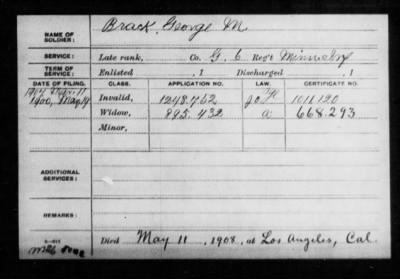 Brack, George M.
NAME OF SOLDIER:
SERVICE: Late rank, Co. G. 6 Reg't Minn Inf
TERM OF SERVICE: Enlisted , 1 Discharged , 1
DATE OF FILING. CLASS. APPLICATION NO. LAW. CERTIFICATE NO.
Invalid, 1248.762 1011.120
1908, Widow, 895.432 668.293
Minor,
ADDITIONAL SERVICES:
REMARKS:
Died May 11, 1908, at Los Angeles, Cal.